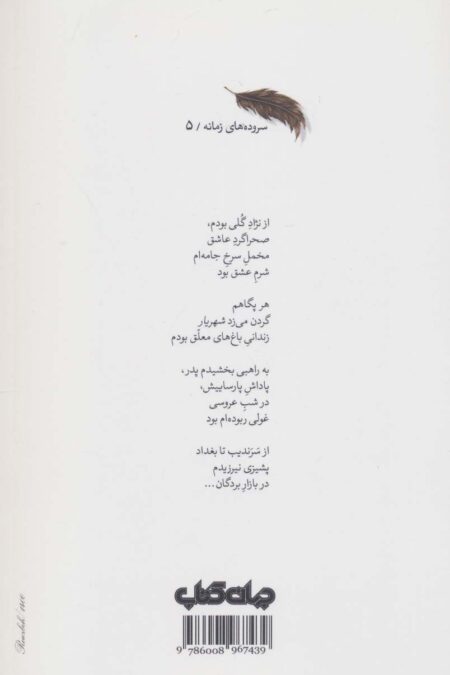 سروده‌های زمانه / ۵
از نژادِ گُلی بودم،
صحراگردِ عاشق
مخملِ سرخِ جامه‌ام
شرمِ عشق بود
هر پگاهم
گردن می‌زد شهریار
زندانیِ باغ‌های معلّق بودم
به راهبی بخشیدم پدر،
پاداشِ پارساییش،
در شبِ عروسی
غولی ربوده‌ام بود
از سَرَندیب تا بغداد
پشیزی نیرزیدم
در بازارِ بردگان...
جهان کتاب
9 786008 967439